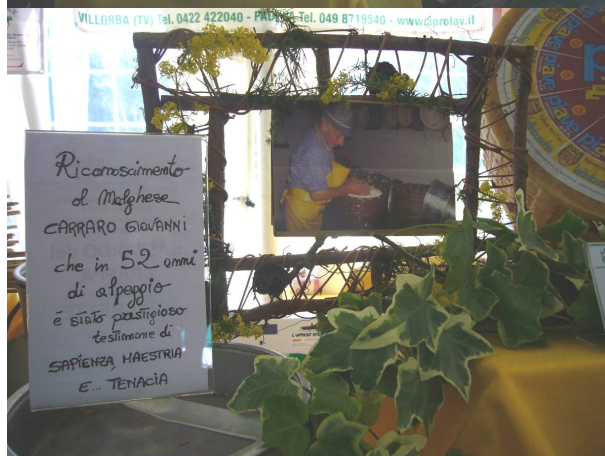 VILLORBA (TV) Tel. 0422 422040 - PADOVA Tel. 049 8719540 - www.aprolav.it
Riconoscimento
al Malghese
CARRARO GIOVANNI
che in 52 anni
di alpeggio
è stato prestigioso
testimone di
SAPIENZA, MAESTRIA
E... TENACIA
piave
piave